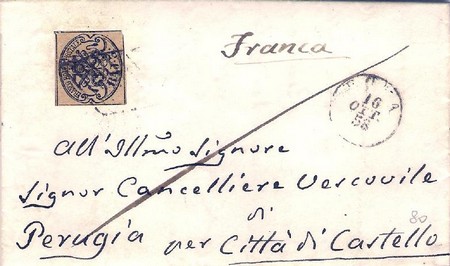 Franca
16
OTT
58
All'Illmo Signore
Signor Cancelliere Vescovile
di
Perugia per Città di Castello
80